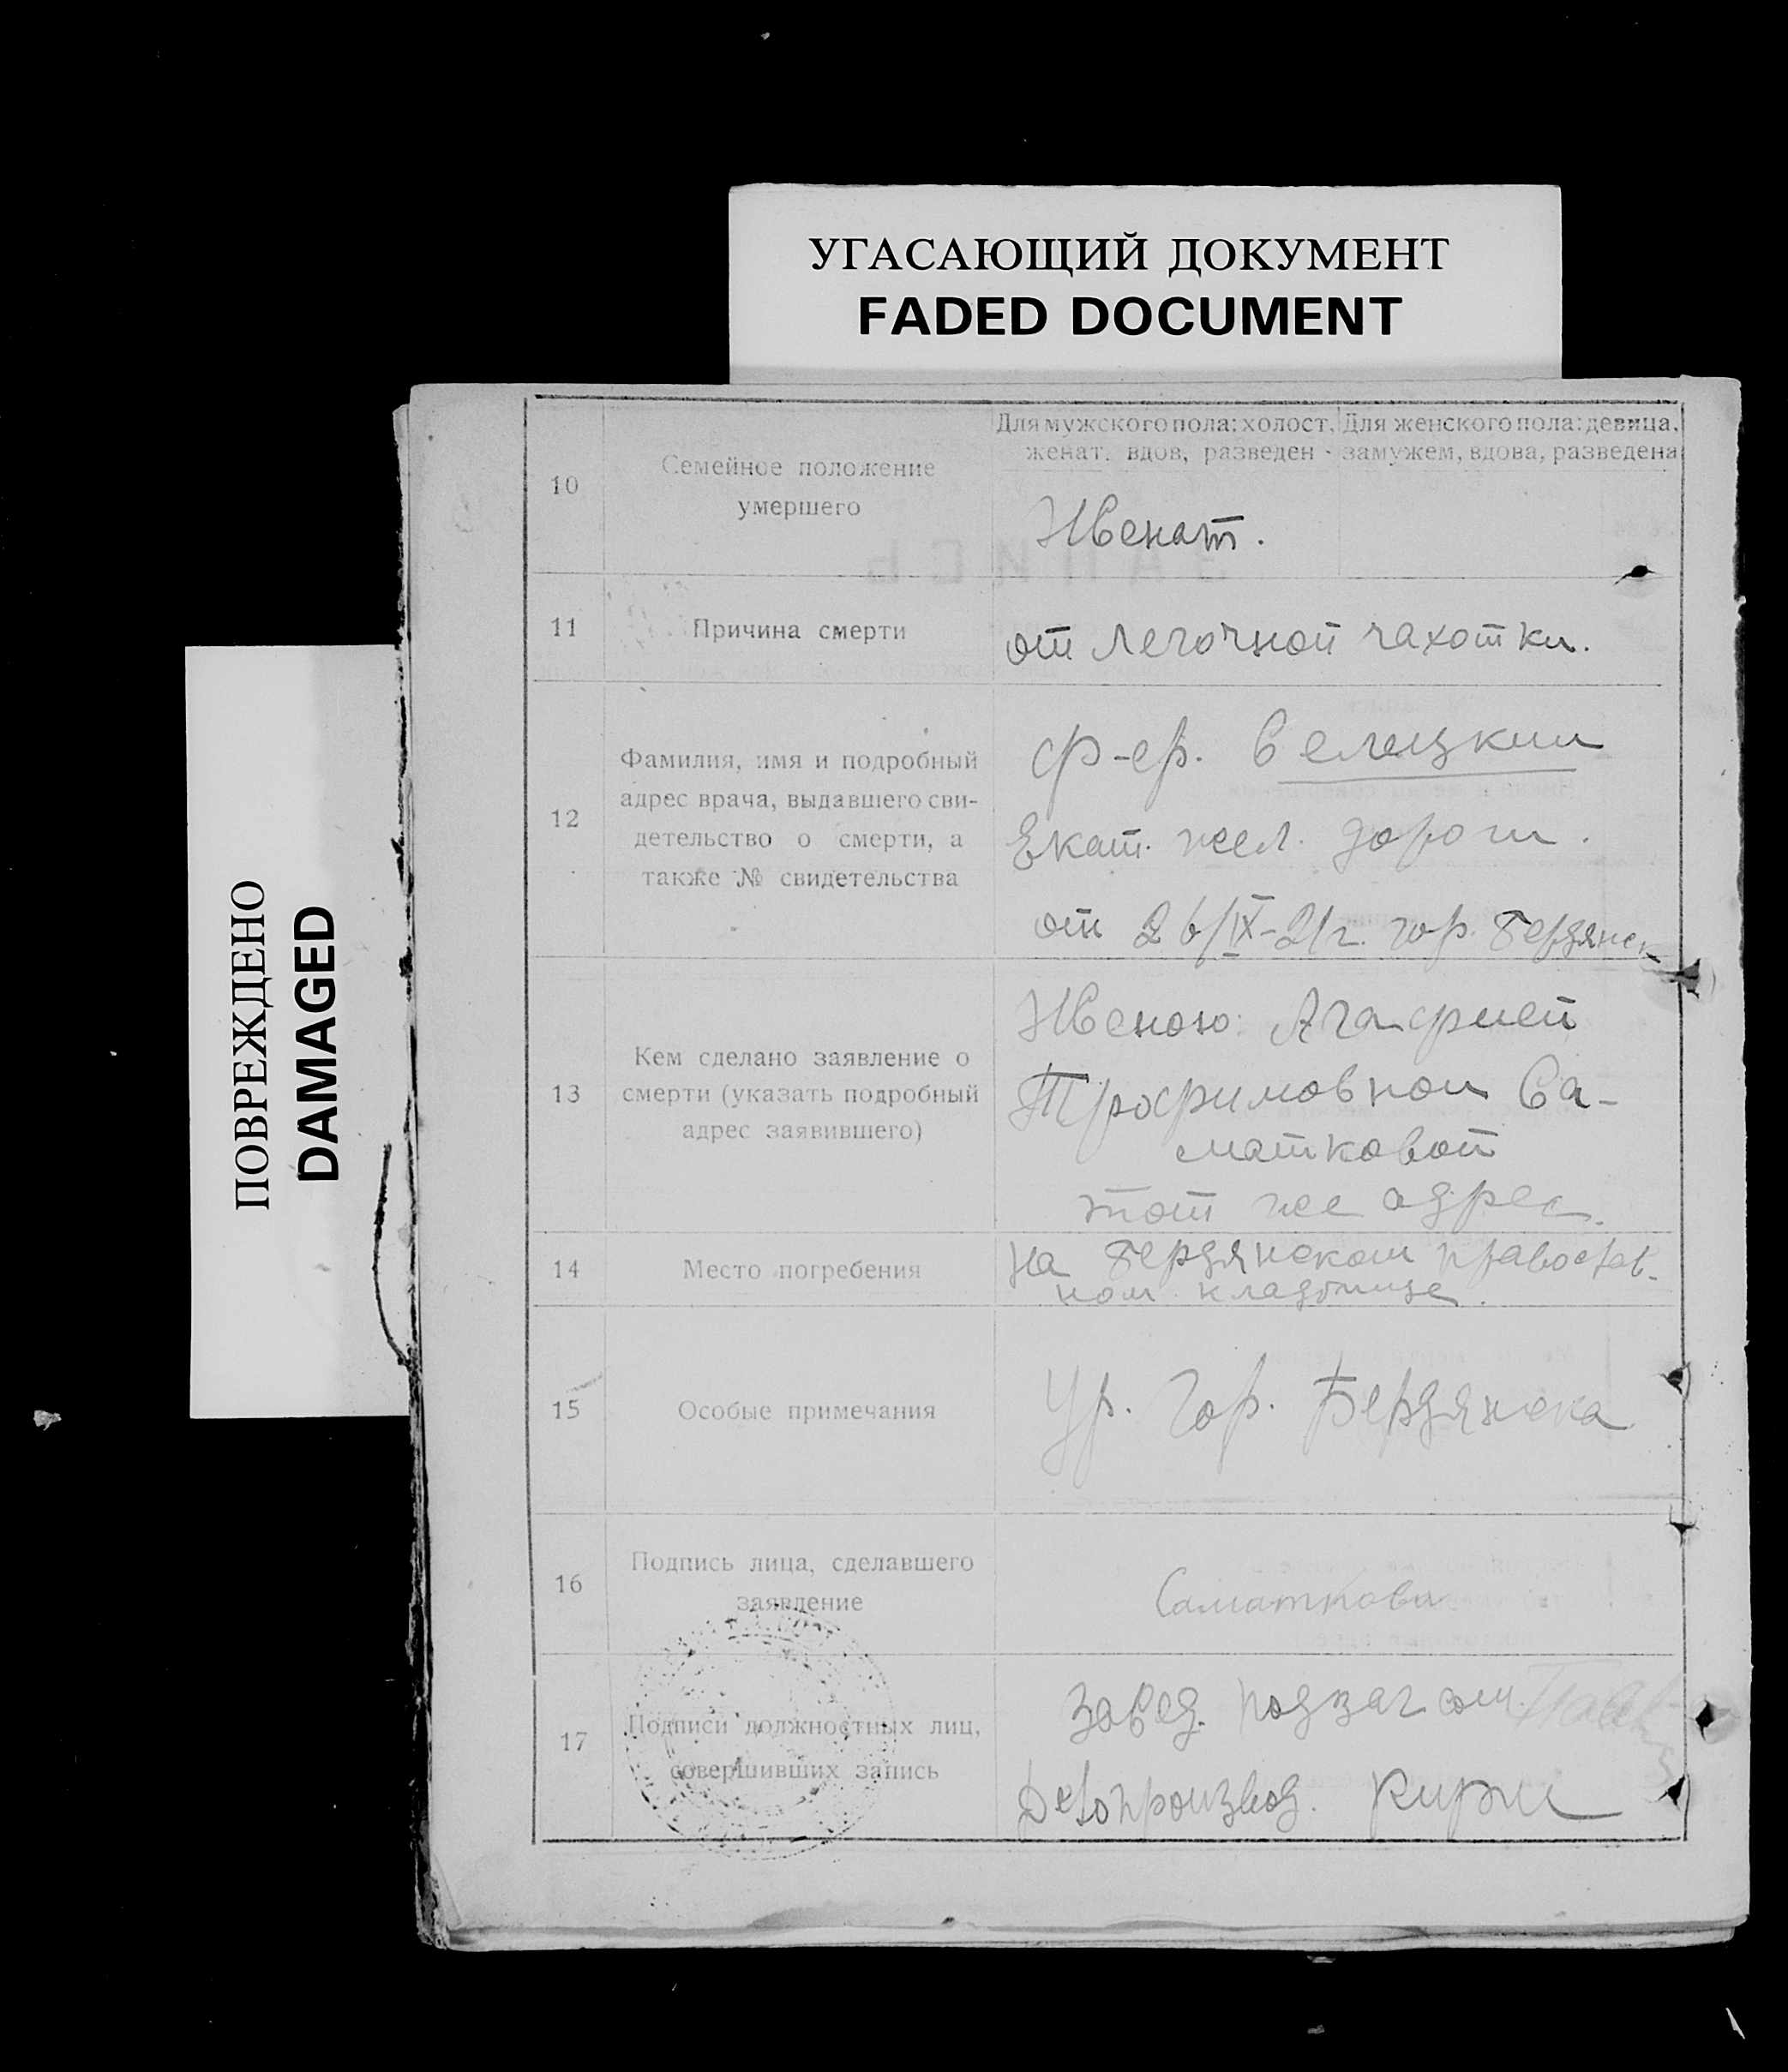 УГАСАЮЩИЙ ДОКУМЕНТ
FADED DOCUMENT
ПОВРЕЖДЕНО
DAMAGED
10
Семейное положение
умершего
Для мужского пола: холост,
женат, вдов, разведен
Для женского пола: девица,
замужем, вдова, разведена
Женат.
11
Причина смерти
от легочной чахотки.
12
Фамилия, имя и подробный
адрес врача, выдавшего сви-
детельство о смерти, а
также № свидетельства
ф-ер. Селецкий
Екат. жел. дороги.
от 26/IX-21г. гор. Бердянск
13
Кем сделано заявление о
смерти (указать подробный
адрес заявившего)
Женою: Агафией
Трофимовной Са-
матковой
тот же адрес.
14
Место погребения
на Бердянском православ-
ном кладбище.
15
Особые примечания
Ур. гор. Бердянска
16
Подпись лица, сделавшего
заявление
Саматкова
17
Подписи должностных лиц,
совершивших запись
Завед. подзагсом
Делопроизвод.